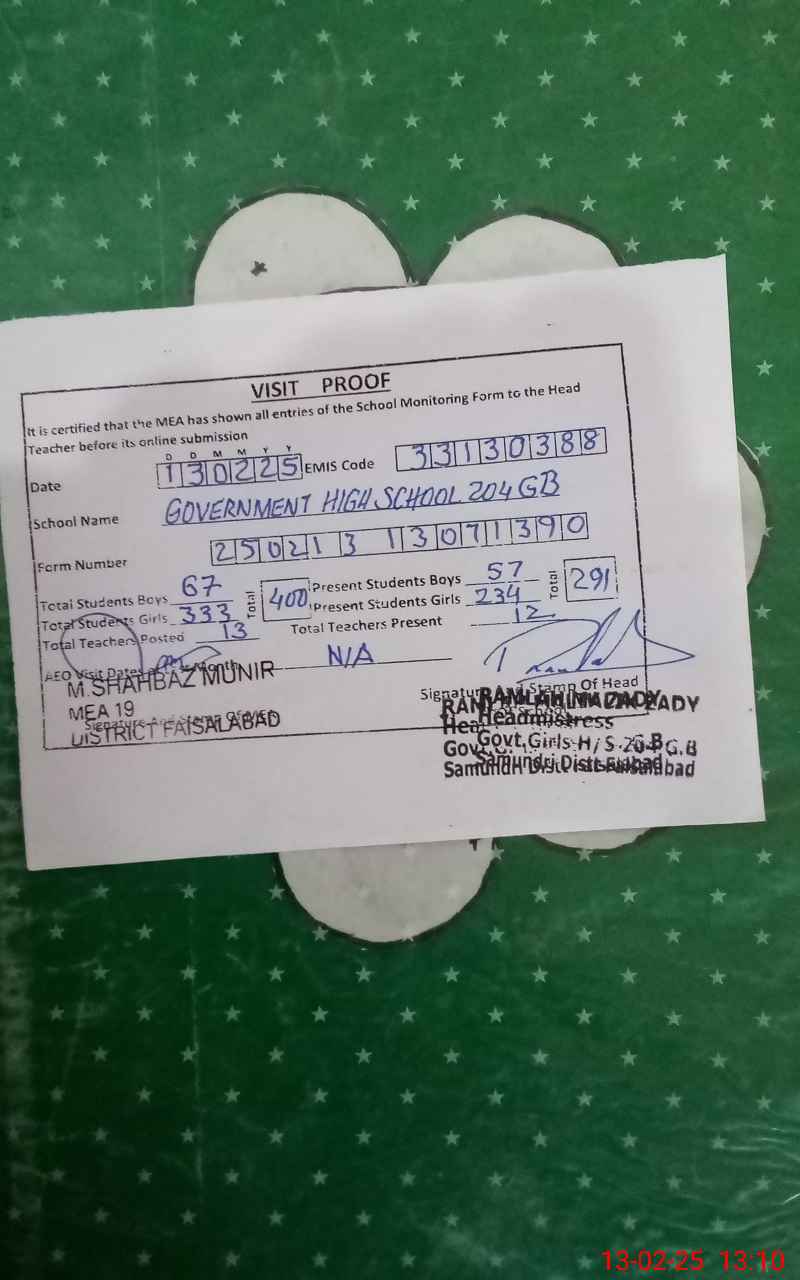 VISIT PROOF
It is certified that the MEA has shown all entries of the School Monitoring Form to the Head
Teacher before its online submission
D D M M Y Y
Date 130225 EMIS Code 33130388
School Name GOVERNMENT HIGH SCHOOL 204 GB
Form Number 250213 13071390
Total Students Boys 67 Total 400 Present Students Boys 57 Total 291
Total Students Girls 333 Present Students Girls 234
Total Teachers Posted 13 Total Teachers Present 12
AEO Visit Dates Month N/A
M.SHAHBAZ MUNIR
MEA 19
DISTRICT FAISALABAD
Stamp Of Head
Headmistress
Govt.Girls H/S G.B
Samundri Distt
13-02-25 13:10